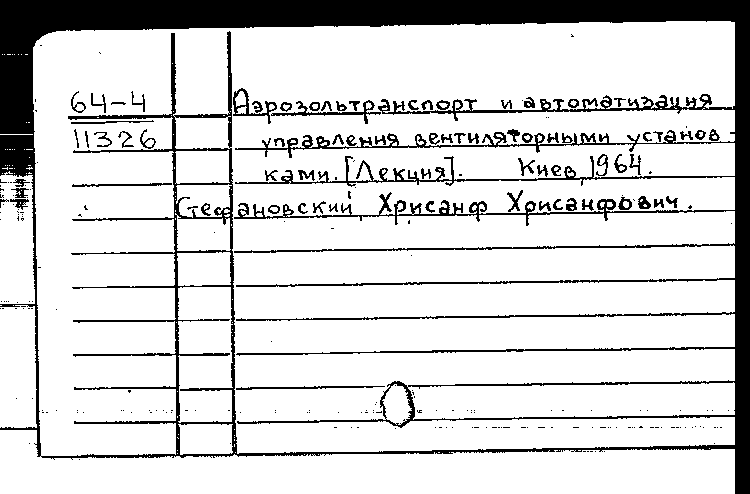 64-4 Аэрозольтранспорт и автоматизация
11326 управления вентиляторными установ-
ками. [Лекция]. Киев, 1964.
Стефановский, Хрисанф Хрисанфович.